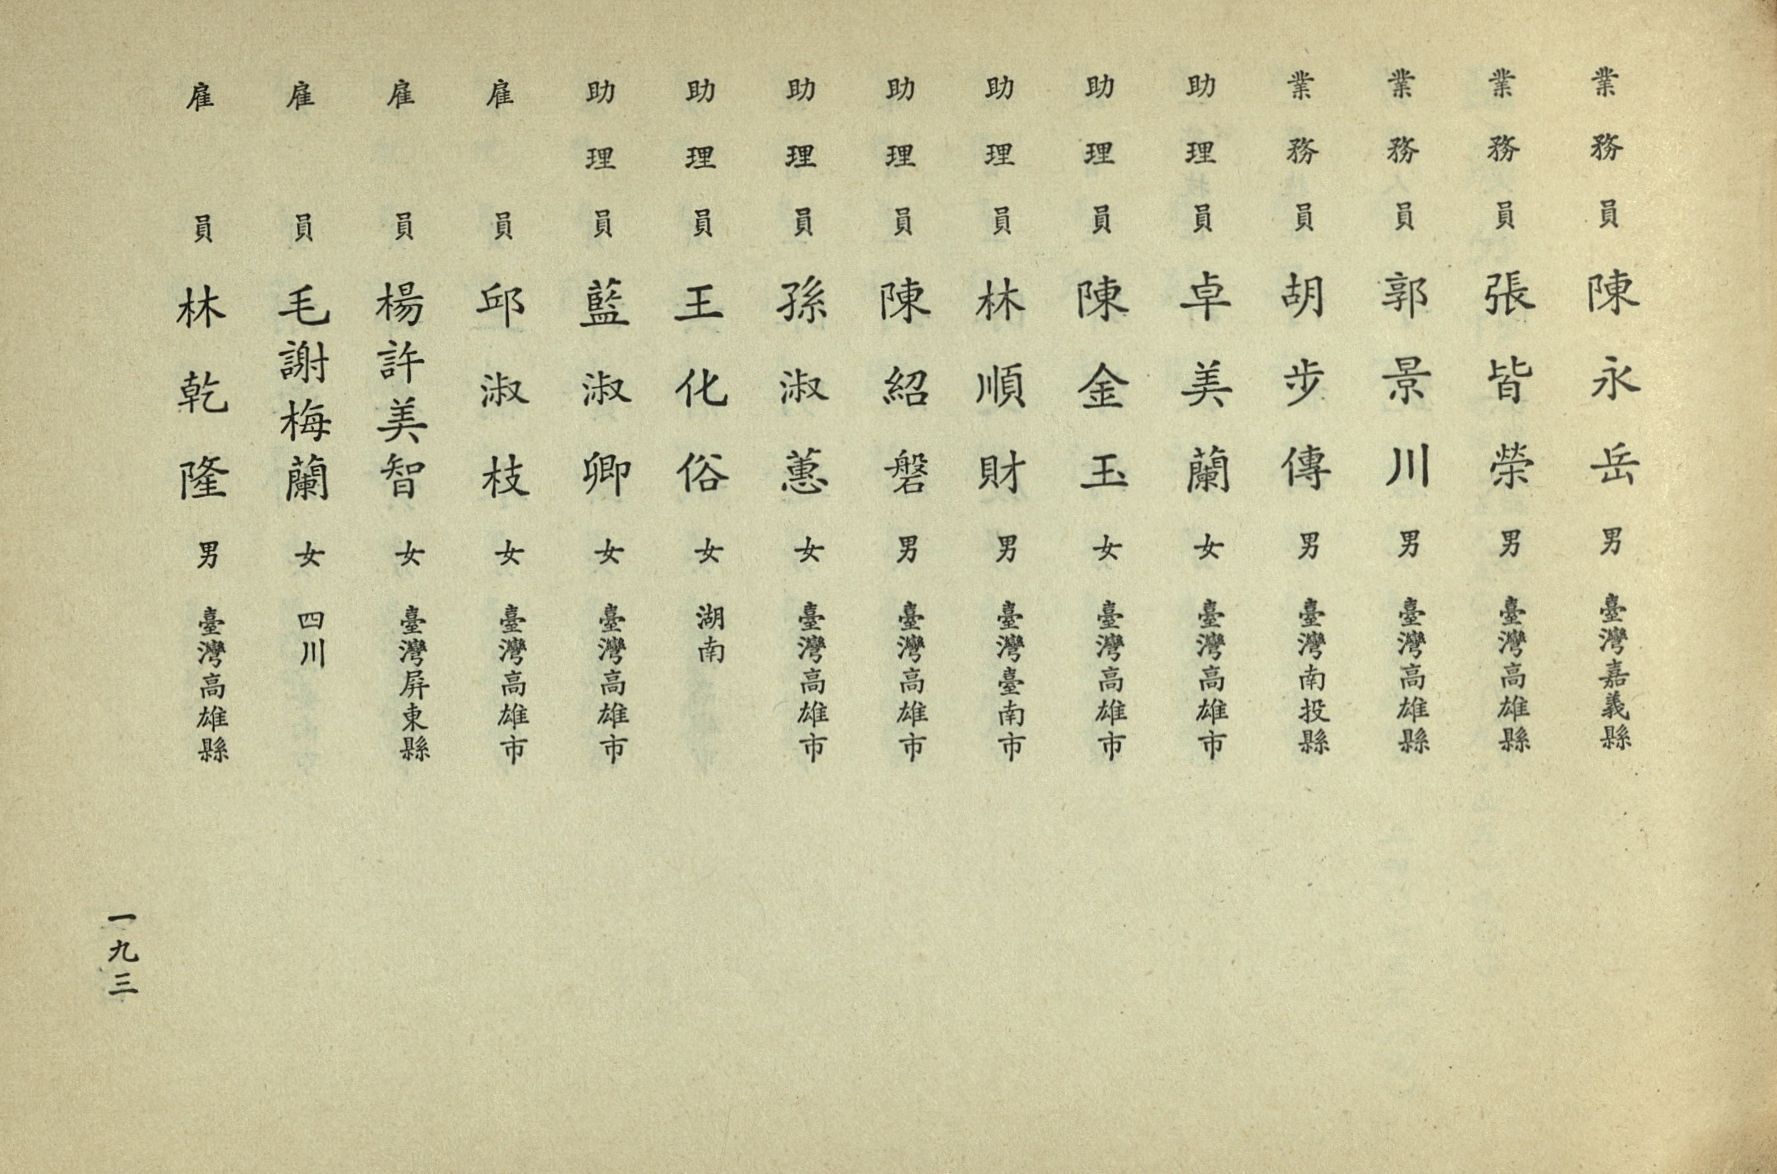 業務員 陳永岳 男 臺灣嘉義縣
業務員 張皆榮 男 臺灣高雄縣
業務員 郭景川 男 臺灣高雄縣
業務員 胡步傳 男 臺灣南投縣
助理員 卓美蘭 女 臺灣高雄市
助理員 陳金玉 女 臺灣高雄市
助理員 林順財 男 臺灣臺南市
助理員 陳紹磐 男 臺灣高雄市
助理員 孫淑蕙 女 臺灣高雄市
助理員 王化俗 女 湖南
助理員 藍淑卿 女 臺灣高雄市
雇員 邱淑枝 女 臺灣高雄市
雇員 楊許美智 女 臺灣屏東縣
雇員 毛謝梅蘭 女 四川
雇員 林乾隆 男 臺灣高雄縣
一九三